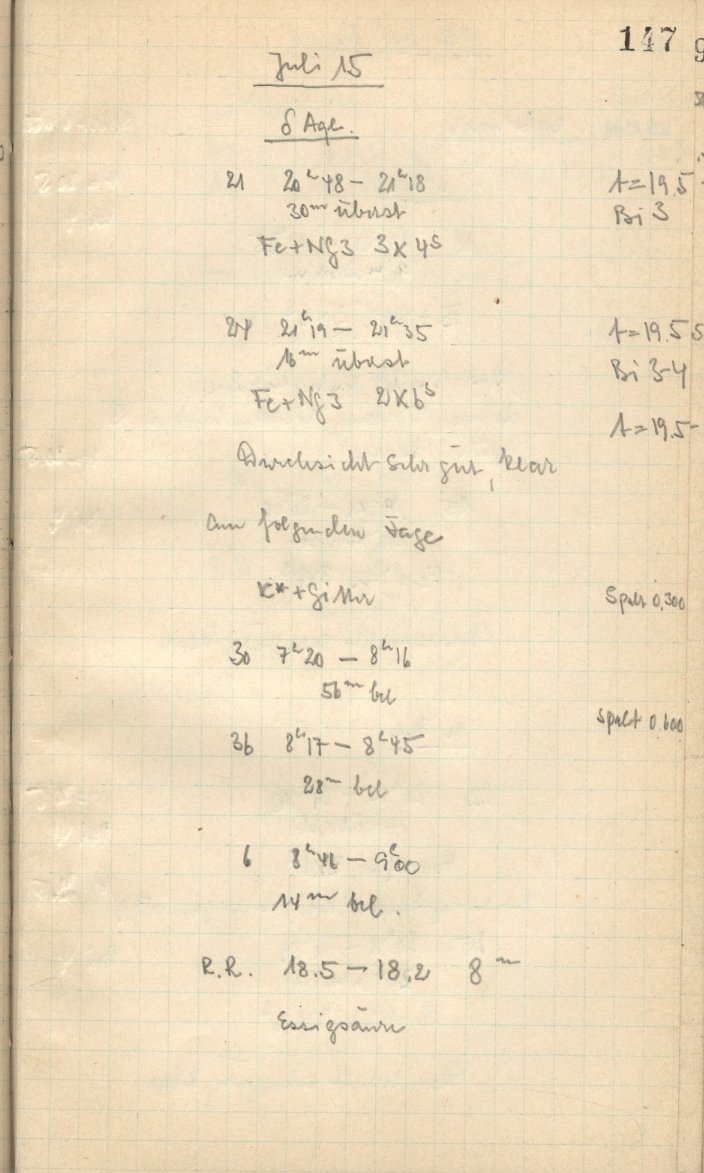 147
Juli 15
δ Aql.
21 20ʰ48 – 21ʰ18 t=19.5
30ᵐ überst Bi 3
Fe+Ng3 3×4ˢ
24 21ʰ19 – 21ʰ35 t=19.55
16ᵐ überst Bi 3-4
Fe+Ng3 2×6ˢ
t=19.5
Durchsicht sehr gut, klar
am folgenden Tage
K*+Gitter Spalt 0.300
30 7ʰ20 – 8ʰ16
56ᵐ bel
Spalt 0.600
36 8ʰ17 – 8ʰ45
28ᵐ bel
6 8ʰ46 – 9ʰ00
14ᵐ bel.
R.R. 18.5 – 18.2 8ᵐ
Essigsäure